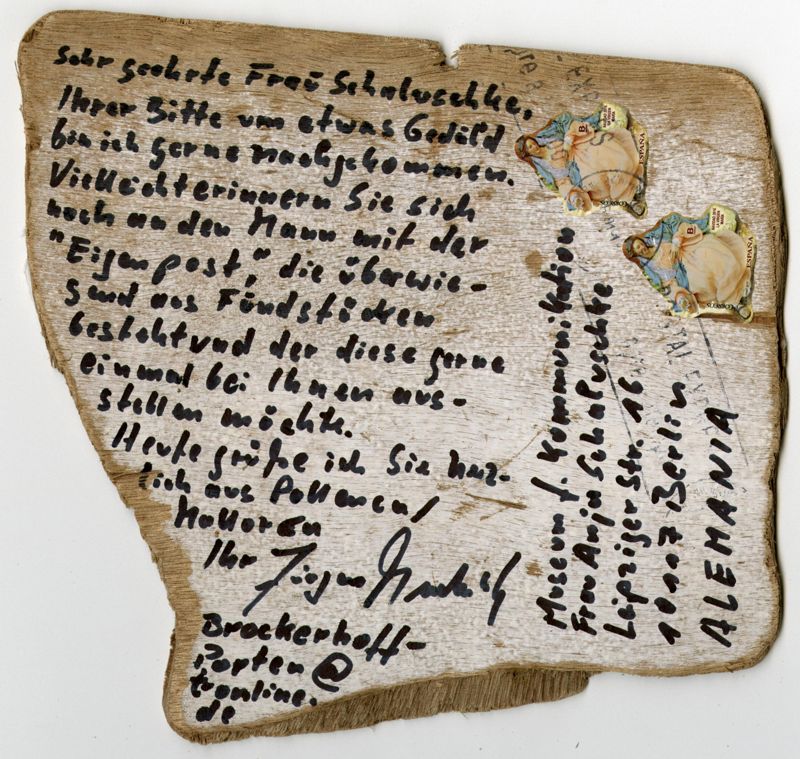 Sehr geehrte Frau Schaluschke,
Ihrer Bitte um etwas Geduld
bin ich gerne nachgekommen.
Vielleicht erinnern Sie sich
noch an den Mann mit der
"Eigenpost," die überwie-
gend aus Fundstücken
besteht und der diese gerne
einmal bei Ihnen aus-
stellen möchte.
Heute grüße ich Sie herz-
lich aus Pollensa/
Mallorca
Ihr Jürgen
Brockerhoff-
Porten@
t-online.
de
Museum f. Kommunikation
Frau Anja Schaluschke
Leipziger Str. 16
10117 Berlin
ALEMANIA
B
ESPAÑA
B
ESPAÑA